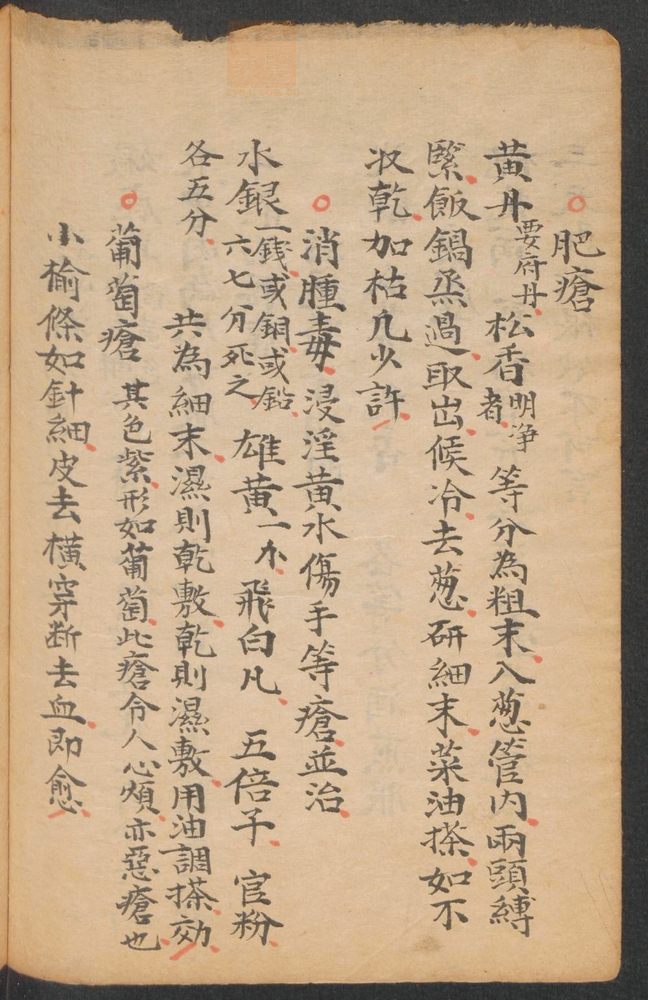 肥瘡
黄丹要府丹松香明净者等分為粗末入葱管内两頭縛
緊飯鍋烝過取出候冷去葱研細末菜油搽如不
收乾加枯凡少許
消腫毒浸淫黄水傷手等瘡並治
水銀一錢或銅或鉛六七分死之雄黄一小飛白凡五倍子官粉
各五分共為細末濕則乾敷乾則濕敷用油調搽効
葡萄瘡其色紫形如葡萄此瘡令人心煩亦惡瘡也
小榆條如針細皮去横穿断去血即愈